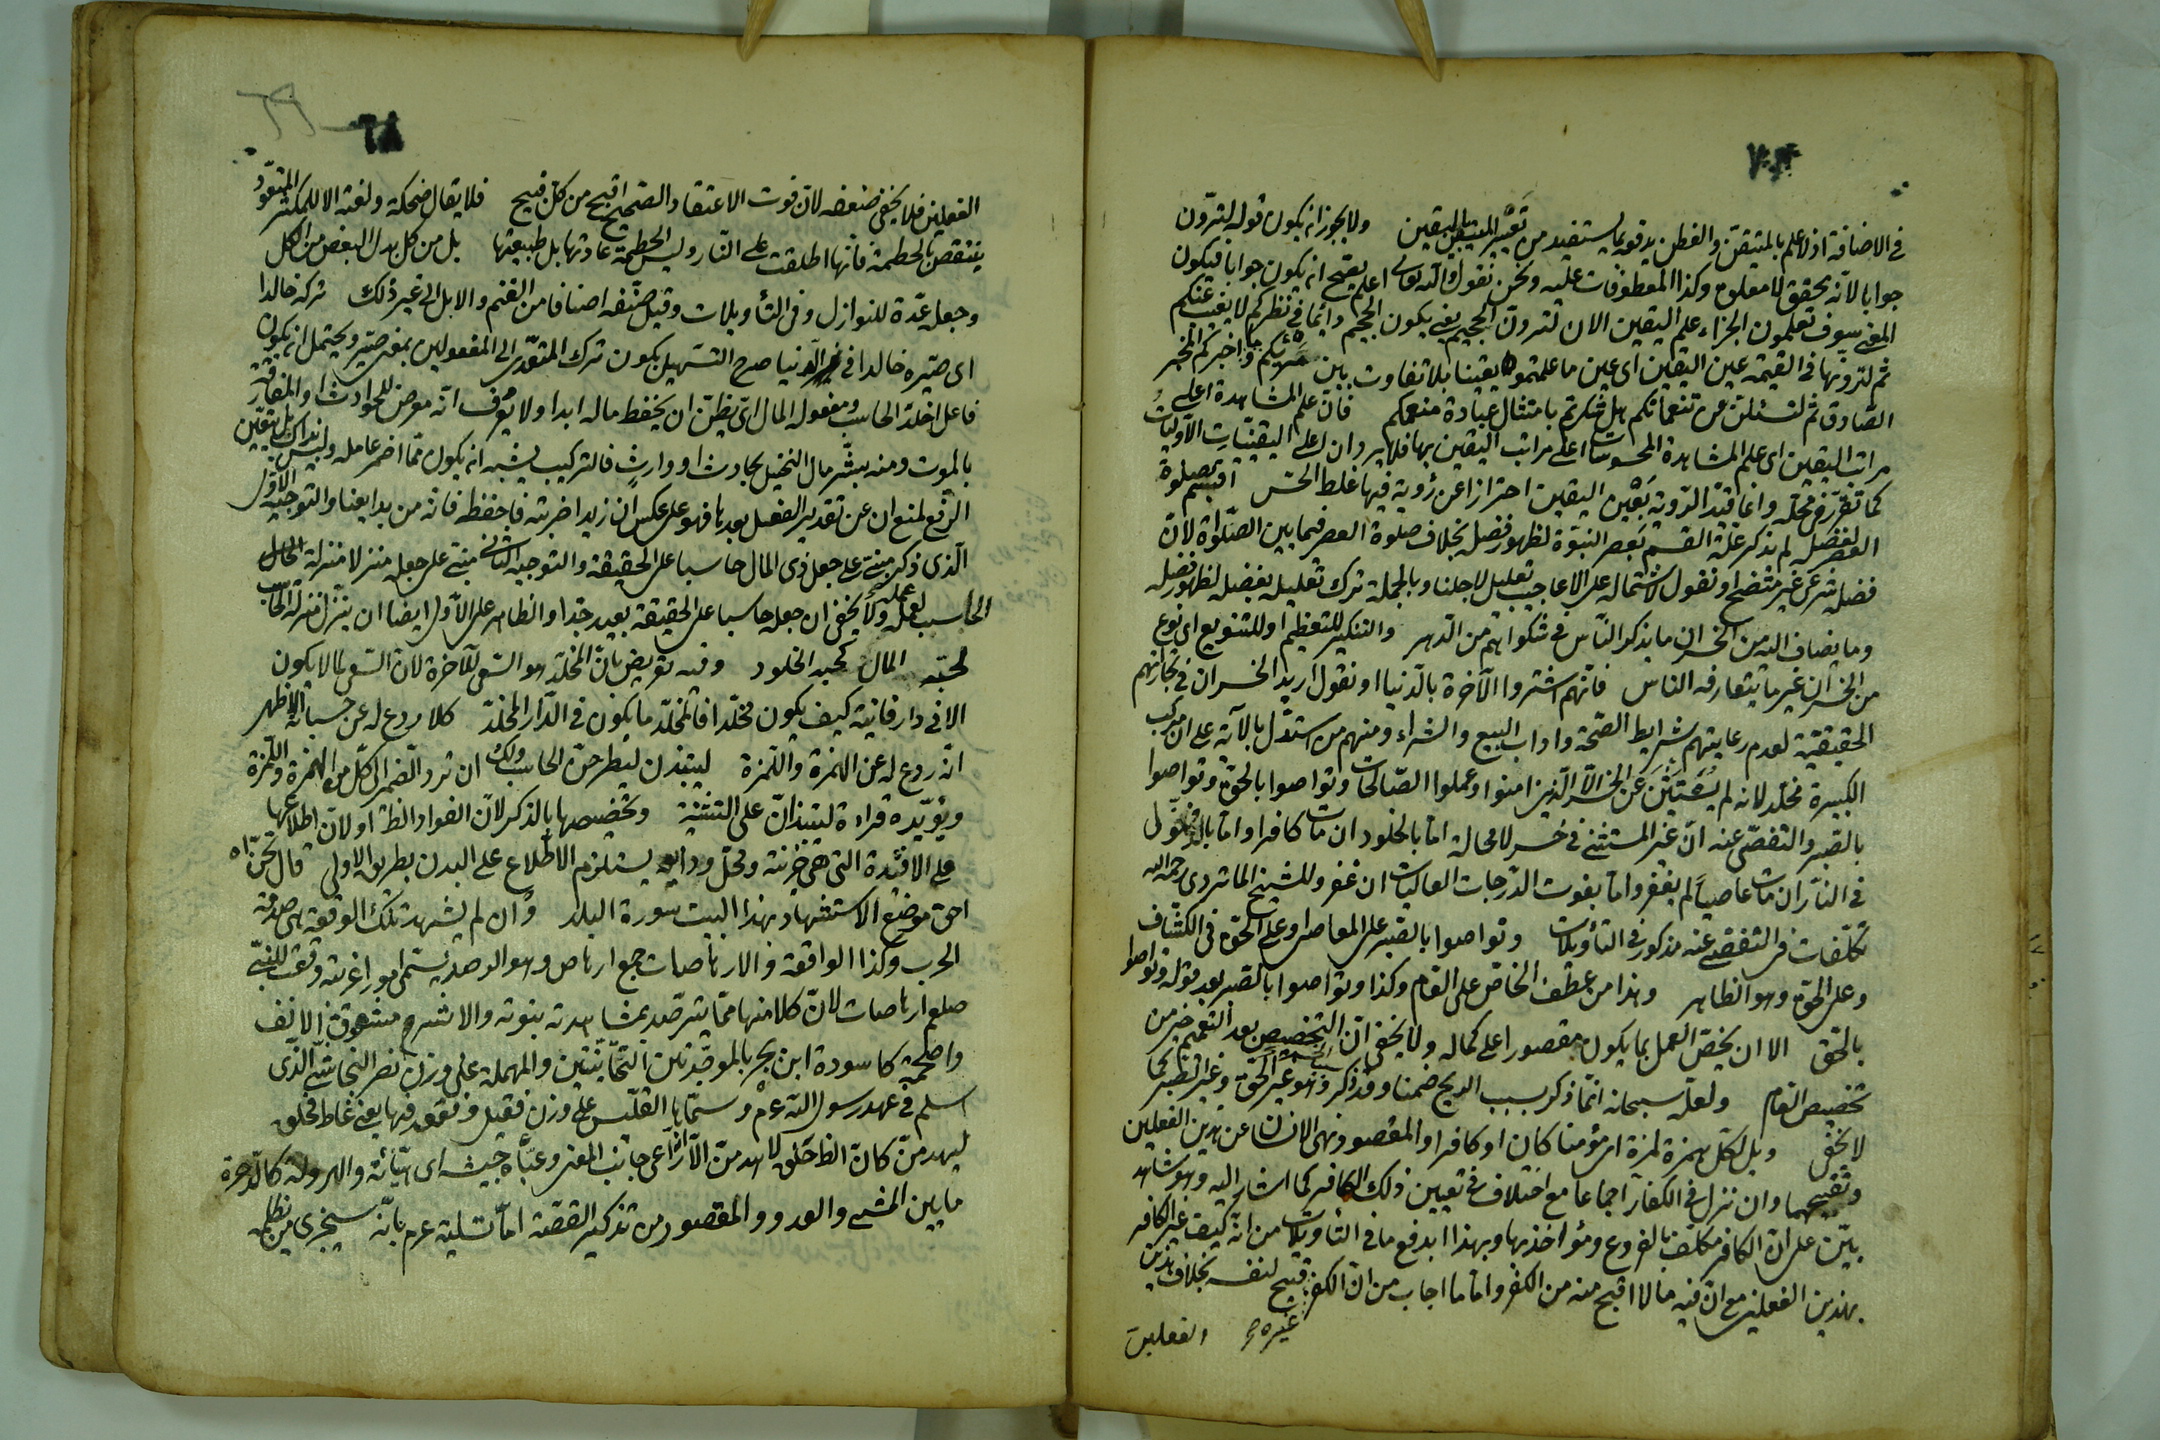 في الاضافة اذ لا علم بالمتيقن والفطن يدقويما يستفيد من تغيير المتيقن باليقين ولا يجوز ان يكون قوله لترون
جوابا لانه محقق لا معلوم وكذا المعطوفات عليه ونحن نقول والله تعالى اعلم يصح ان يكون جوابا فيكون
المعنى سوف تعلمون الجزاء علم اليقين الان لترون الجحيم يعني يكون الجحيم دائما في نظركم لا يغيب عنكم
ثم لترونها في القيمة عين اليقين اى عين ما علمتموه يقينا بلا تفاوت بين واخبركم المخبر
الصادق ثم لتسئلن عن تنعماتكم هل شكرتم بامتثال عبادة منعمكم فان علم المشاهدة اعلى
مراتب اليقين اى علم المشاهدة المحسوسات اعلى مراتب اليقين بها فلا يرد ان اعلى اليقينيات الاوليات
كما تقرر في محله وانما قيد الروية بعين اليقين احترازا عن رؤية فيها غلط الحس اقسم بصلوة
العصر لفضله لم يذكر علة القسم بعصر النبوة لظهور فضله بخلاف صلوة العصر فيما بين الصلواة لان
فضله شرعى غير متضح او نقول لاشتماله على الاعاجيب تعليل لاجلنا وبالجملة ترك تعليله بفضله لظهور فضله
وما يضاف اليه من الخسران ما يذكر الناس في شكواتهم من الدهر والتنكير للتعظيم او للتنويع اى نوع
من الخسران غير ما يتعارفه الناس فانهم اشتروا الآخرة بالدنيا او نقول اريد الخسران في تجارتهم
الحقيقية لعدم رعايتهم شرايط الصحة واداب البيع والشراء ومنهم من استدل بالآية على ان مرتكب
الكبيرة مخلد لانه لم يستثن عن الخسر الا الذين امنوا وعملوا الصالحات وتواصوا بالحق وتواصوا
بالصبر والتفصى عنه ان غير المستثنى في خسر لا محالة اما بالخلود ان مات كافرا واما بالدخول
في النار ان مات عاصيا لم يغفر واما بفوت الدرجات العاليات ان غفر وللشيخ الماتريدى رحمه الله
تكلفات في التفصى عنه مذكور في التأويلات وتواصوا بالصبر على المعاصى وعلى الحق في الكشاف
وعلى الحق وهو الظاهر وهذا من عطف الخاص على العام وكذا وتواصوا بالصبر بعد قوله وتواصوا
بالحق الا ان يخص العمل بما يكون مقصورا على كماله ولا يخفى ان التخصيص بعد التعميم خير من
تخصيص العام ولعله سبحانه انما ذكر سبب الربح ضمنا وقد ذكر وهو غير الحق وغير الصبر كما
لا يخفى ويل لكل همزة لمزة اى مؤمنا كان او كافرا والمقصود نهى الانسان عن هذين الفعلين
وتقبيحهما وان نزل في الكفار اجماعا مع اختلاف في تعيين ذلك الكافر كما اشار اليه وهو شاهد
بين على ان الكافر مكلف بالفروع ومؤاخذ بها وبهذا اندفع ما في التأويلات من انه كيف غير الكافر
بهذين الفعلين مع ان فيه ما لا اقبح منه من الكفر واما ما اجاب من ان الكفر قبيح لنفسه بخلاف هذين
غيره صح الفعلين
الفعلين فلا يخفى ضعفه لان فوت الاعتقاد الصحيح اقبح من كل قبيح فلا يقال ضحكة ولعنة الا للمكثر المتعود
ينتقص بالحطمة فانها اطلقت على النار وليس الحطمة عادتها بل طبيعتها بل من كل بدل البعض من الكل
وجعله عدة للنوازل وفي التأويلات وقيل صنفه اصنافا من الغنم والابل الى غير ذلك تركه خالدا
اى صيره خالدا في الدنيا صرح التسهيل بكون ترك المتعدى الى المفعولين بمعنى صير ويحتمل ان يكون
فاعل اخلد الحاسب ومفعوله المال اى يظن ان يحفظ ماله ابدا ولا يعرف انه معرض للحوادث او المفارقة
بالموت ومنه بشر مال البخيل بحادث او وارث فالتركيب يشبه ان يكون مما اضمر عامله وليس كذلك بل يتعين
الرفع لمنع ان عن تقدير الفعل بعدها فهو على عكس ان زيدا ضربته فاحفظه فانه من بدايعنا والتوجيه الاول
الذى ذكر مبنى على جعل ذى المال حاسبا على الحقيقة والتوجيه الثانى مبنى على جعله منزلا منزلة الحال
الحاسب لعمله ولا يخفى ان جعله حاسبا على الحقيقة بعيد جدا والظاهر على الاول ايضا ان ينزل منزلة الحاسب
لمحبته المال كمحبة الخلود وفيه تعريض بان المخلد هو السعى للآخرة لان السعى لما لا يكون
الا في دار فانية كيف يكون مخلدا فالمخلد ما يكون في الدار المخلد كلا ردع له عن حسبانه الاظهر
انه ردع له عن الهمزة واللمزة لينبذن ليطرحن الحاسب ولك ان ترد الضمير الى كل من الهمزة واللمزة
ويؤيده قراءة لينبذان على التثنية وتخصيصها بالذكر لان الفواد الطف او لان اطلاعها
على الافئدة التى هى خزينة ومحل ودايع يستلزم الاطلاع على البدن بطريق الاولى قال نحن نراه
احق موضع الاستشهاد بهذا البيت سورة البلد وان لم يشهد تلك الوقعة هى صدمة
الحرب وكذا الواقعة والارهاصات جمع ارهاص وهو الرصد يسمى امور غريبة وقعت للنبى
صلعم ارهاصات لان كلا منها مما يترصد بمشاهدته نبوته والاشرم مشقوق الانف
واصحمة كاسودة ابن بحر بالموحدتين التحتانيتين والمهملة على وزن نصر النجاشى الذى
اسلم في عهد رسول الله عم وسماها القليس على وزن قبيل فقعد فيها يعنى غاط فحلق
ليهدمن كان الظ حلق لاهدمن الا انه راعى جانب المعنى وعبأه جيشه اى هيأته والهرولة كالدحرجة
ما بين المشى والعدو والمقصود من تذكير القصة اما تسلية عم بانه سيجزى من ظلمه